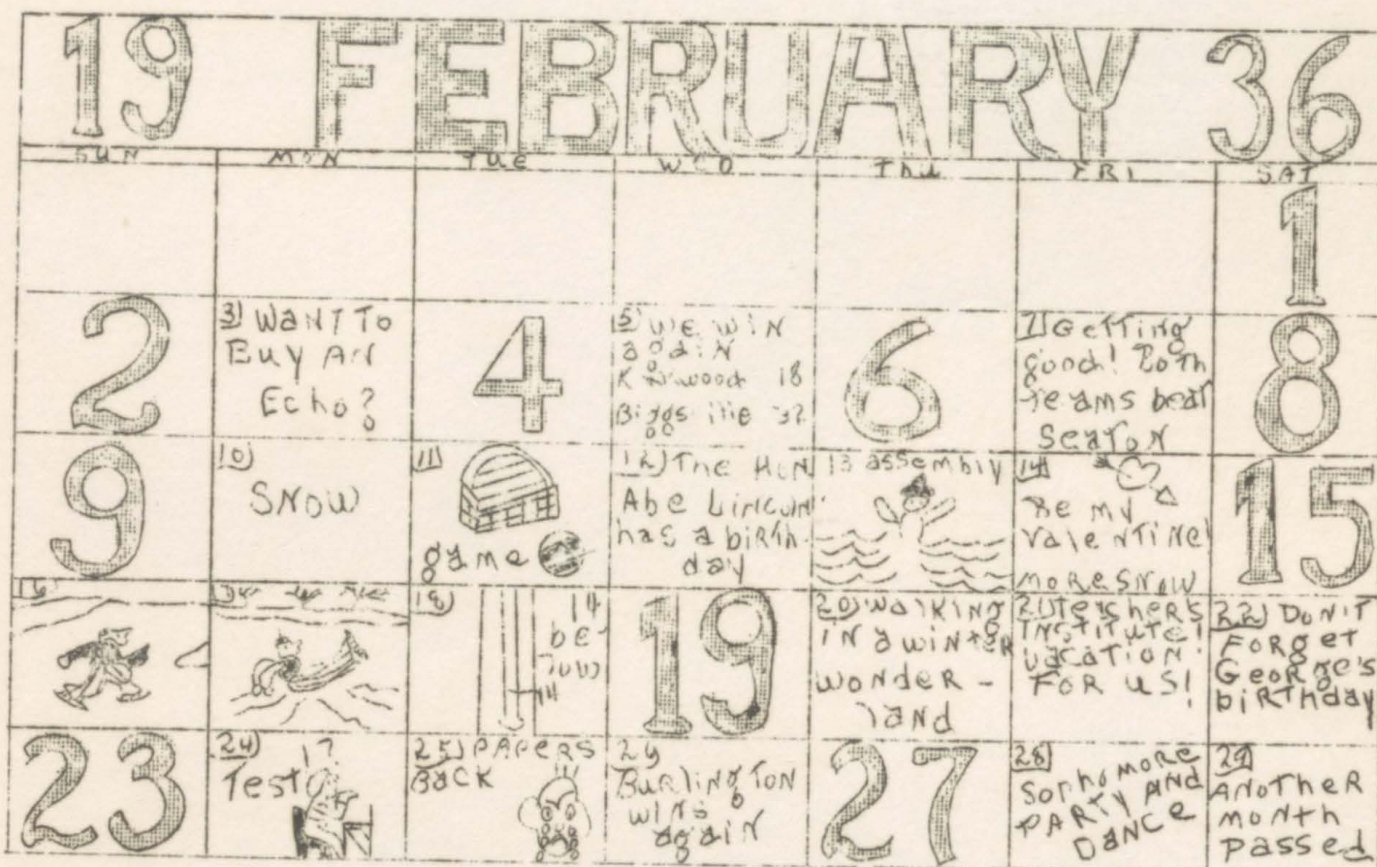 19 FEBRUARY 36
SUN MON TUE WED Thu FRI SAT
1
2
3) WANT TO
BUY AN
Echo?
4
5) WE WIN
again
18
Biggsville 32
6
7) Getting
good! Both
teams beat
SEATON
8
9
10)
SNOW
11)
game
12) The HON
Abe LINCOLN
has a biRTh-
day
13 assembly
14)
Be my
ValeNTINe!
moRe SNOW
15
16)
18)
14
be
low
14
19
20) WalkING
IN a winter
wonder-
land
21) Teacher's
INSTITUTE!
VACATION
FOR US!
22) DON'T
FORget
GeoRge's
biRThday
23
24) !?
Test
25) PAPERS
BACK
26
BurlingTON
wins
again
27
28)
Sophomore
PARTY AND
DANCE
29
ANOTHER
MONth
passed